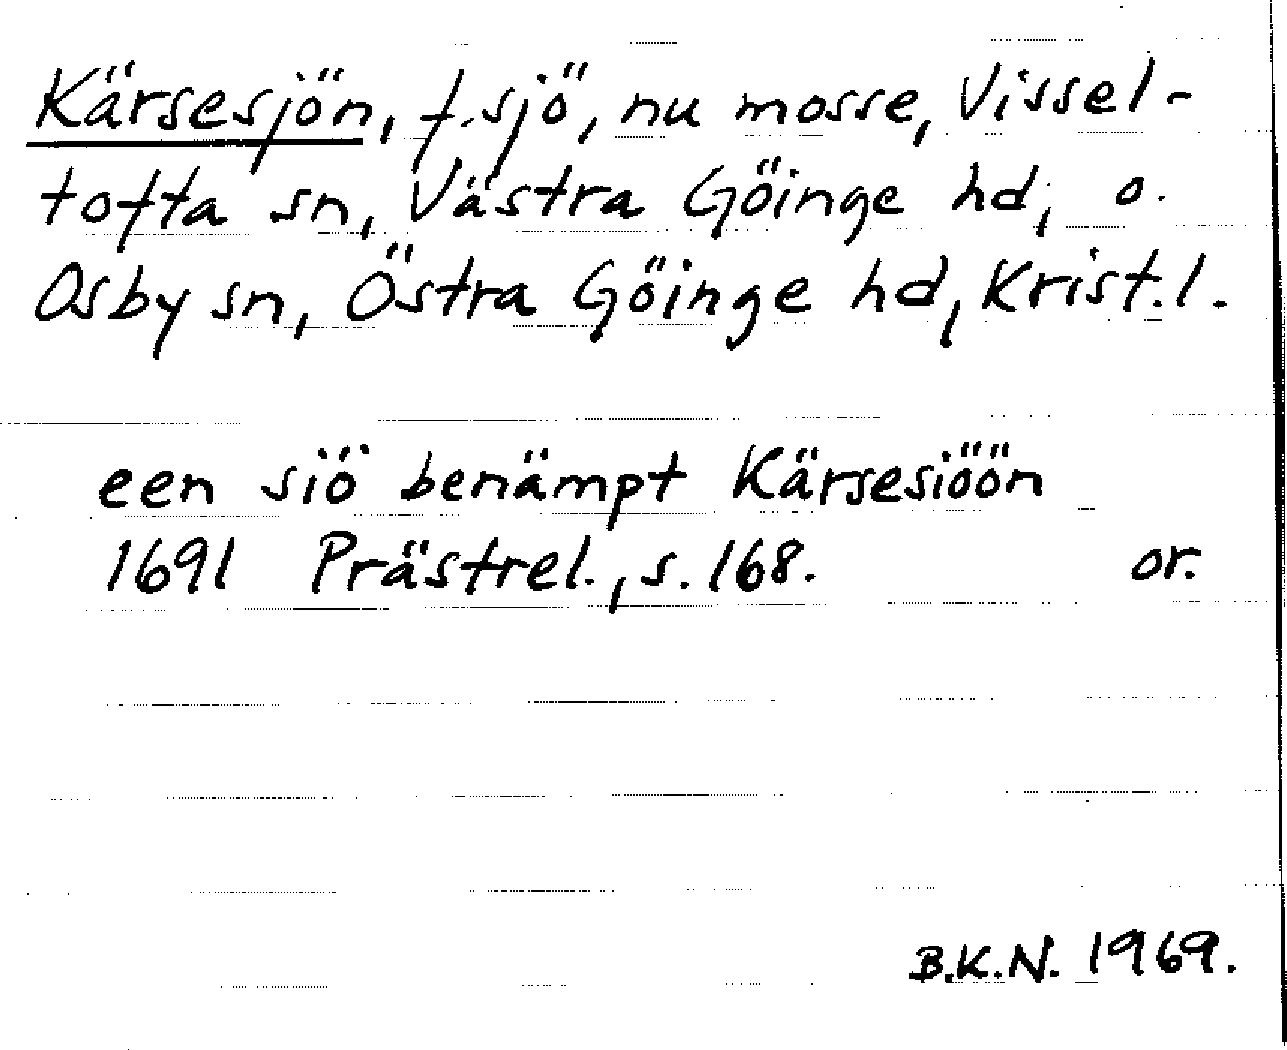 Kärsesjön, f. sjö, nu mosse, Vissel-
tofta sn, Västra Göinge hd, o.
Osby sn, Östra Göinge hd, Krist. l.
een siö benämpt Kärsesiöön
1691 Prästrel., s. 168. or.
B.K.N. 1969.